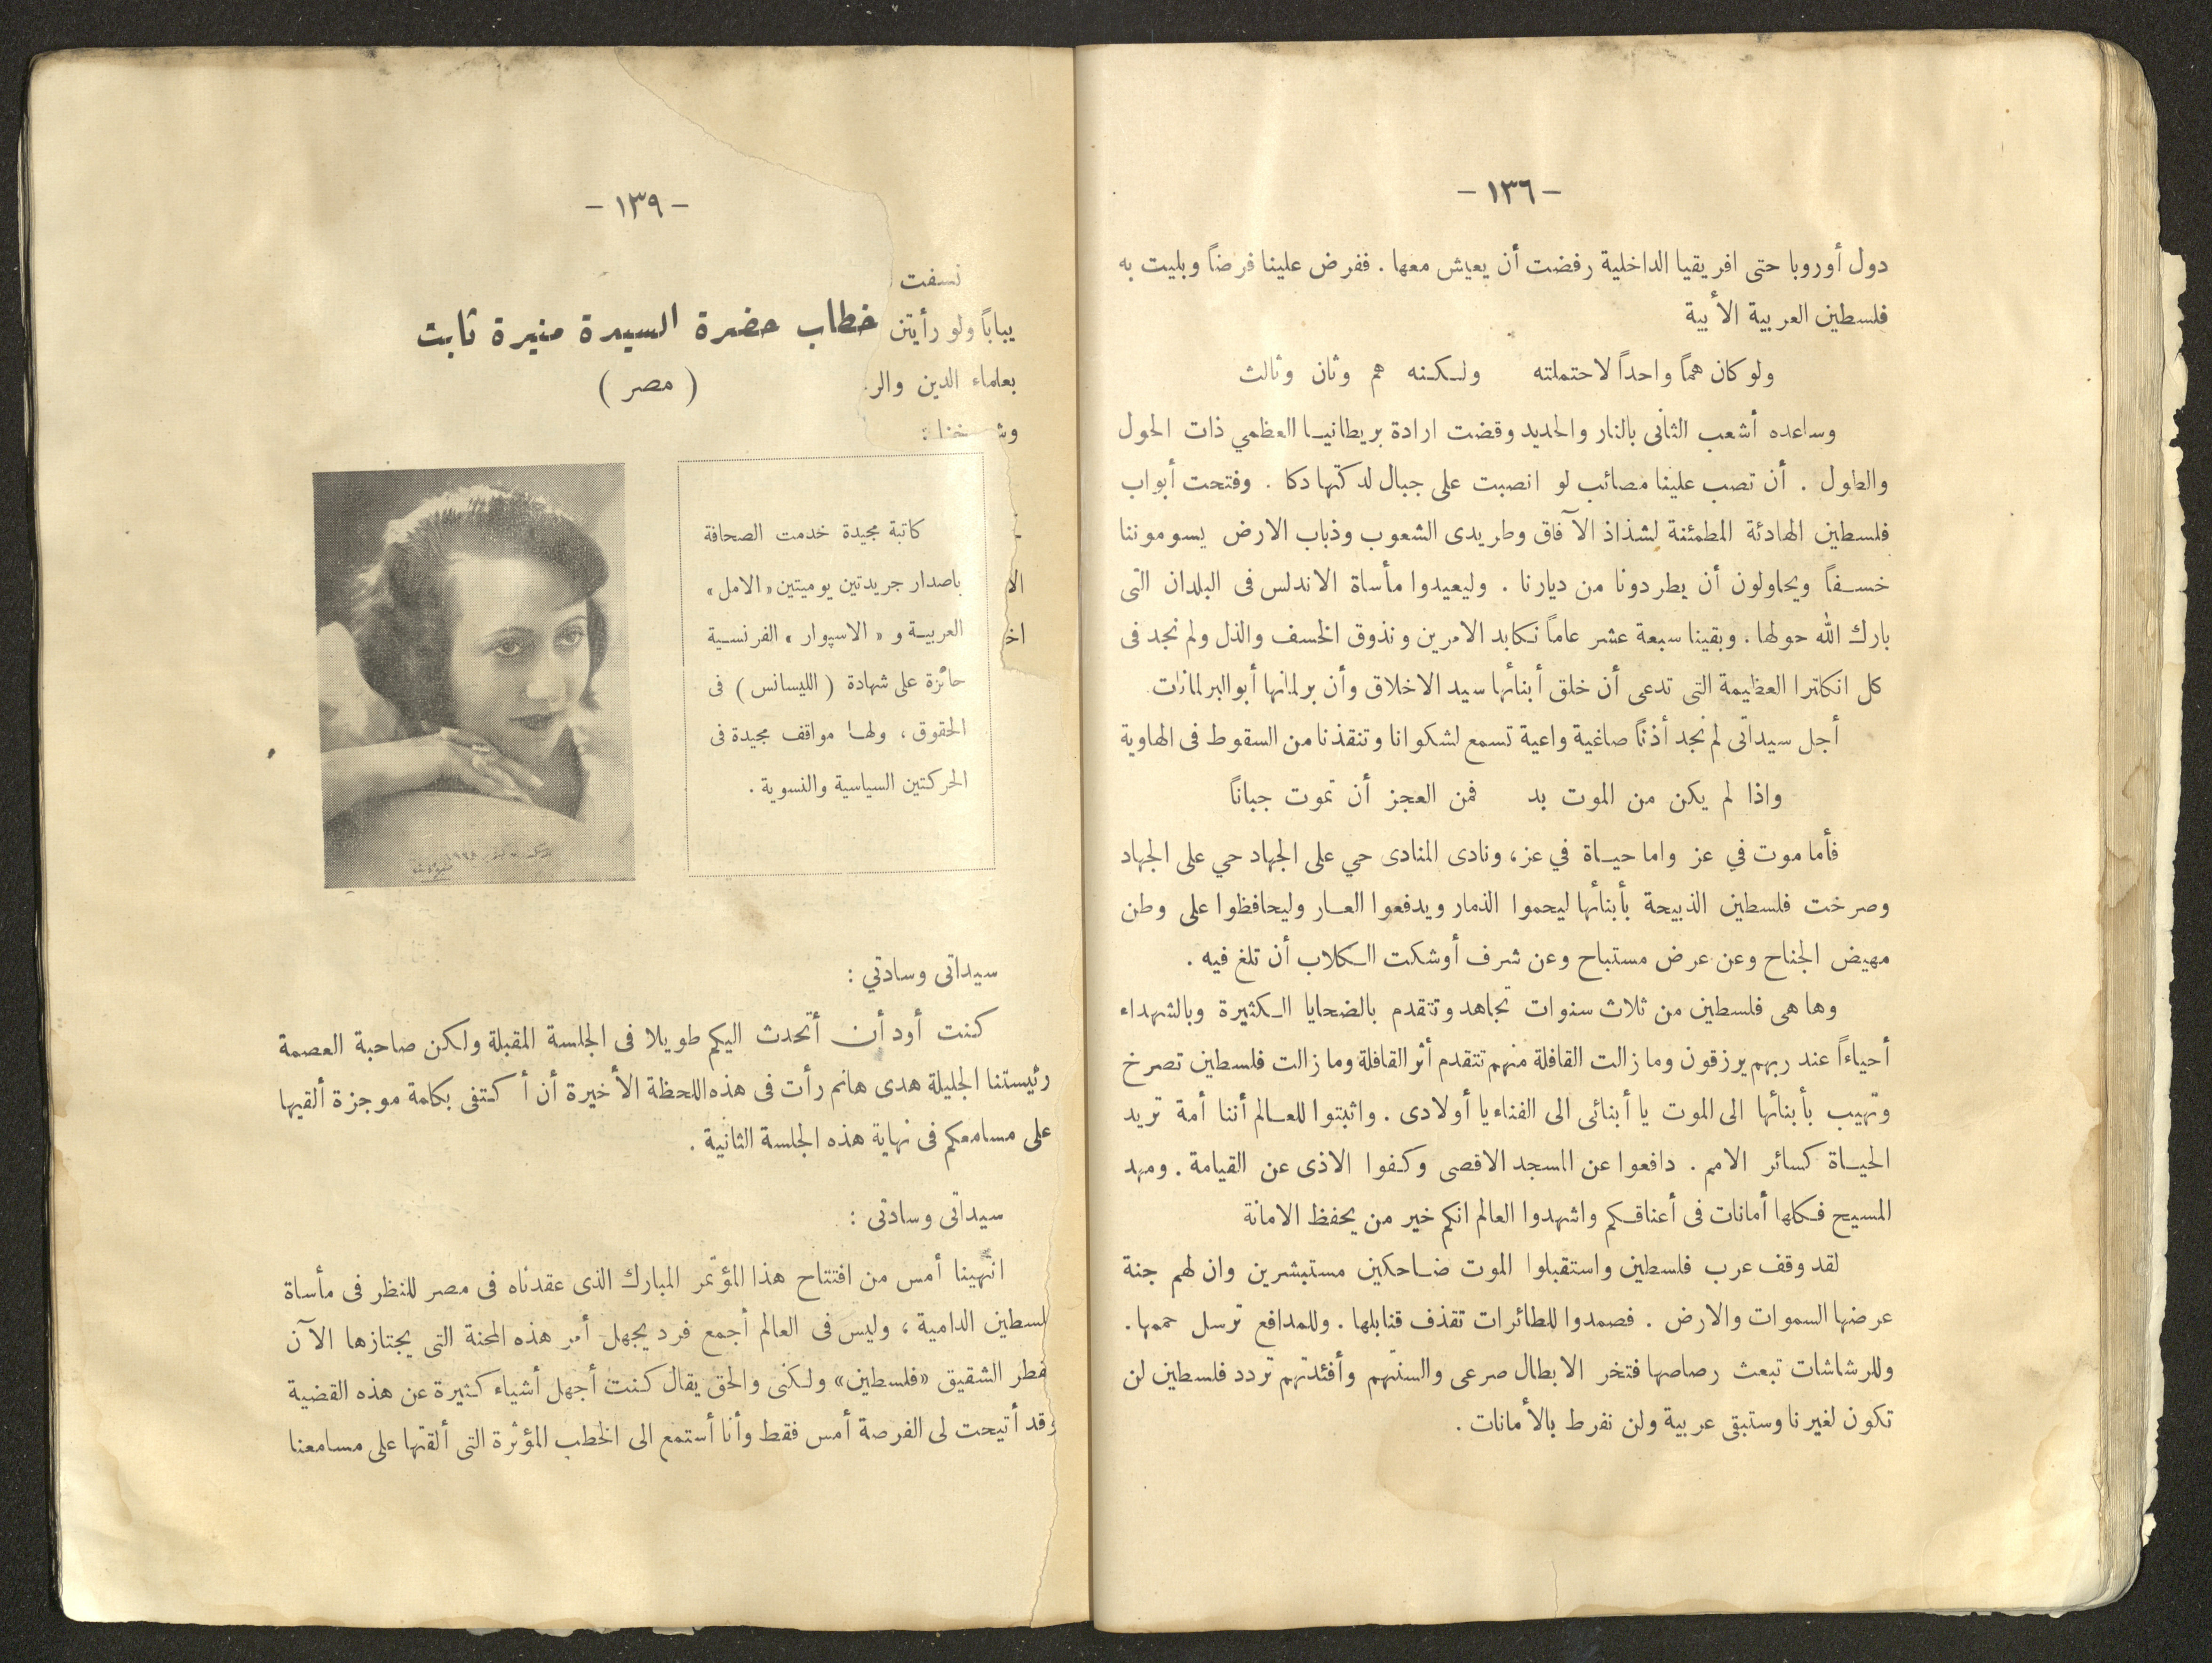 - ١٣٦ -
دول أوروبا حتى افريقيا الداخلية رفضت أن يعيش معها . ففرض علينا فرضاً وبليت به
فلسطين العربية الأبية
ولو كان هماً واحداً لاحتملته ولكنه هم وثان وثالث
وساعده أشعب الثانى بالنار والحديد وقضت ارادة بريطانيا العظمي ذات الحول
والطول . أن تصب علينا مصائب لو انصبت على جبال لدكتها دكا . وفتحت أبواب
فلسطين الهادئة المطمئنة لشذاذ الآفاق وطريدى الشعوب وذباب الارض يسوموننا
خسفاً ويحاولون أن يطردونا من ديارنا . وليعيدوا مأساة الاندلس فى البلدان التى
بارك الله حولها . وبقينا سبعة عشر عاماً نكابد الامرين ونذوق الخسف والذل ولم نجد فى
كل انكلترا العظيمة التى تدعى أن خلق أبنائها سيد الاخلاق وأن برلمانها أبو البرلمانات
أجل سيداتى لم نجد أذناً صاغية واعية تسمع لشكوانا وتنقذنا من السقوط فى الهاوية
واذا لم يكن من الموت بد فمن العجز أن تموت جباناً
فأما موت في عز واما حياة في عز ، ونادى المنادى حي على الجهاد حي على الجهاد
وصرخت فلسطين الذبيحة بأبنائها ليحموا الذمار ويدفعوا العار وليحافظوا على وطن
مهيض الجناح وعن عرض مستباح وعن شرف أوشكت الكلاب أن تلغ فيه .
وها هى فلسطين من ثلاث سنوات تجاهد وتتقدم بالضحايا الكثيرة وبالشهداء
أحياءاً عند ربهم يرزقون وما زالت القافلة منهم تتقدم أثر القافلة وما زالت فلسطين تصرخ
وتهيب بأبنائها الى الموت يا أبنائى الى الفناء يا أولادى . واثبتوا للعالم أننا أمة تريد
الحياة كسائر الامم . دافعوا عن المسجد الاقصى وكفوا الاذى عن القيامة . ومهد
المسيح فكلها أمانات فى أعناقكم واشهدوا العالم انكم خير من يحفظ الامانة
لقد وقف عرب فلسطين واستقبلوا الموت ضاحكين مستبشرين وان لهم جنة
عرضها السموات والارض . فصمدوا للطائرات تقذف قنابلها . وللمدافع ترسل حممها .
وللرشاشات تبعث رصاصها فتخر الابطال صرعى والسنتهم وأفئدتهم تردد فلسطين لن
تكون لغيرنا وستبقى عربية ولن نفرط بالأمانات .
- ١٣٩ -
نسفت
يباباً ولو رأيتن
بعلماء الدين والر
الا
اخ
خطاب حضرة السيدة منيرة ثابت
( مصر )
كاتبة مجيدة خدمت الصحافة
باصدار جريدتين يوميتين « الامل »
العربية و « الاسپوار » الفرنسية
حائزة على شهادة ( الليسانس ) فى
الحقوق ، ولها مواقف مجيدة فى
الحركتين السياسية والنسوية .
سيداتى وسادتي :
كنت أود أن أتحدث اليكم طويلا فى الجلسة المقبلة ولكن صاحبة العصمة
رئيستنا الجليلة هدى هانم رأت فى هذه اللحظة الأخيرة أن أكتفى بكلمة موجزة ألقيها
على مسامعكم فى نهاية هذه الجلسة الثانية .
سيداتى وسادتى :
انتهينا أمس من افتتاح هذا المؤتمر المبارك الذى عقدناه فى مصر للنظر فى مأساة
لسطين الدامية ، وليس فى العالم أجمع فرد يجهل أمر هذه المحنة التى يجتازها الآن
قطر الشقيق «فلسطين» ولكنى والحق يقال كنت أجهل أشياء كثيرة عن هذه القضية
وقد أتيحت لى الفرصة أمس فقط وأنا أستمع الى الخطب المؤثرة التى ألقتها على مسامعنا